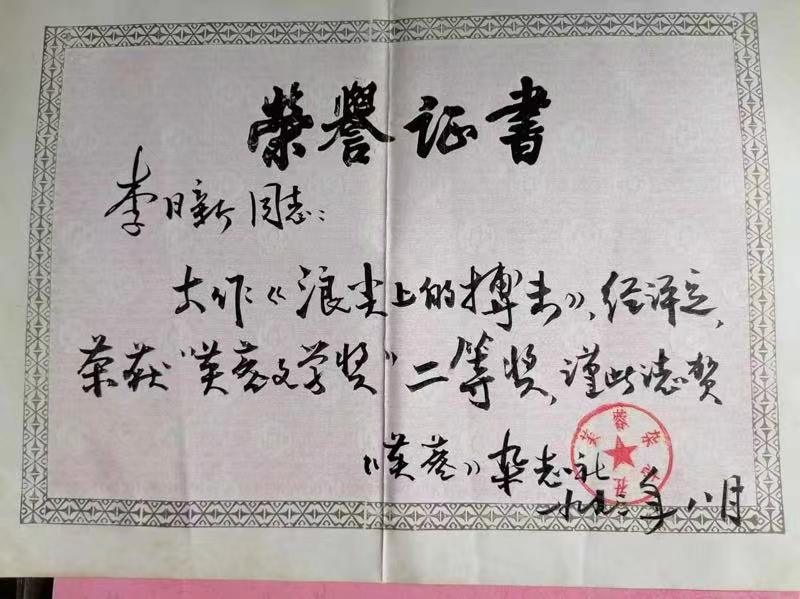 荣誉证書
李日新同志:
大作《浪尖上的搏击》,经评定,
荣获“芙蓉文学奖”二等奖,谨此志贺
《芙蓉》杂志社
年八月
芙蓉杂志社